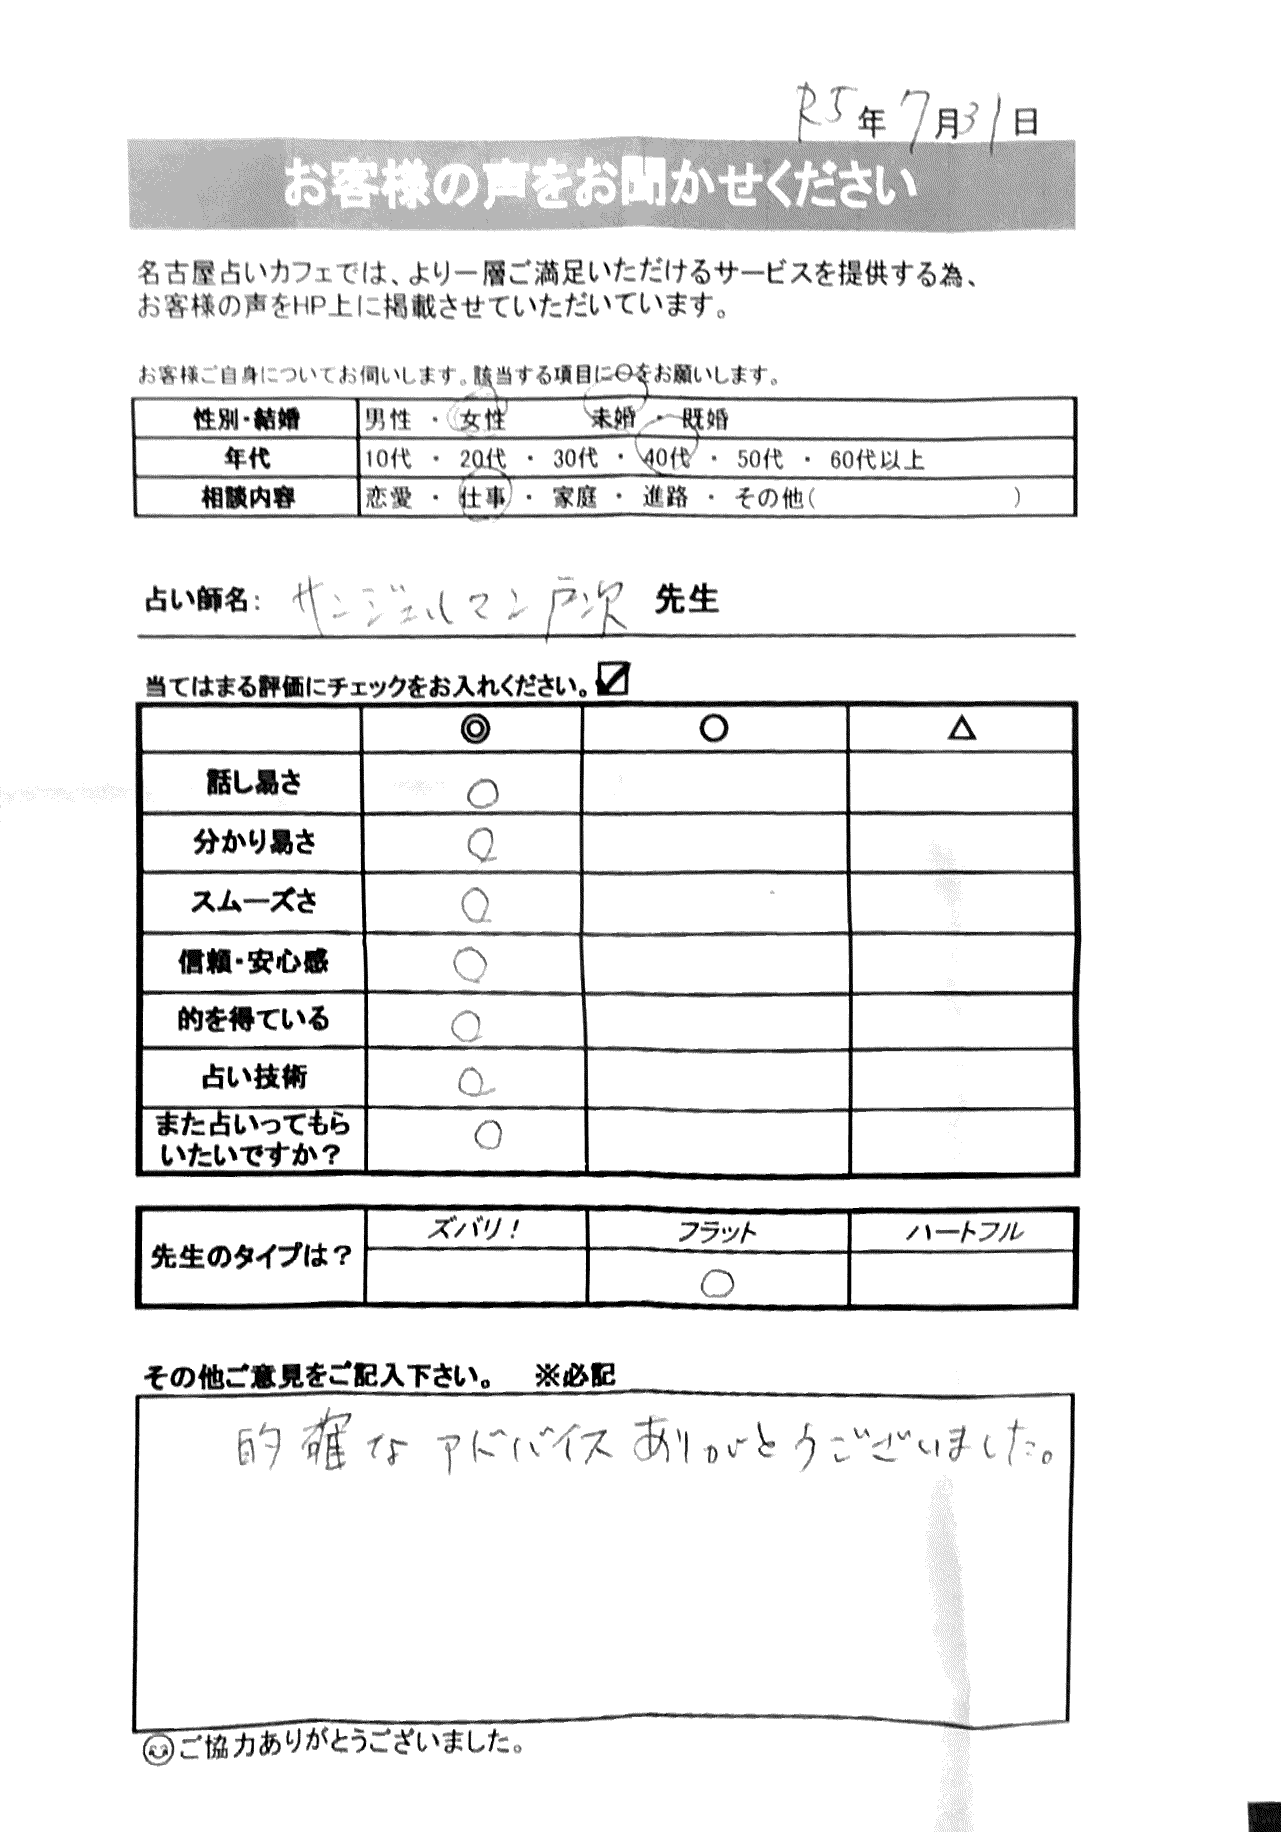 R5年7月31日
お客様の声をお聞かせください
名古屋占いカフェでは、より一層ご満足いただけるサービスを提供する為、
お客様の声をHP上に掲載させていただいています。
お客様ご自身についてお伺いします。該当する項目に〇をお願いします。
性別・結婚 男性 ・ 女性 未婚 ・ 既婚
年代 10代 ・ 20代 ・ 30代 ・ 40代 ・ 50代 ・ 60代以上
相談内容 恋愛 ・ 仕事 ・ 家庭 ・ 進路 ・ その他( )
占い師名: サンジェルマン戸次 先生
当てはまる評価にチェックをお入れください。☑
◎ ○ △
話し易さ ○
分かり易さ ○
スムーズさ ○
信頼・安心感 ○
的を得ている ○
占い技術 ○
また占いってもら
いたいですか？ ○
ズバリ！ フラット ハートフル
先生のタイプは？ ○
その他ご意見をご記入下さい。 ※必記
的確なアドバイスありがとうございました。
ご協力ありがとうございました。